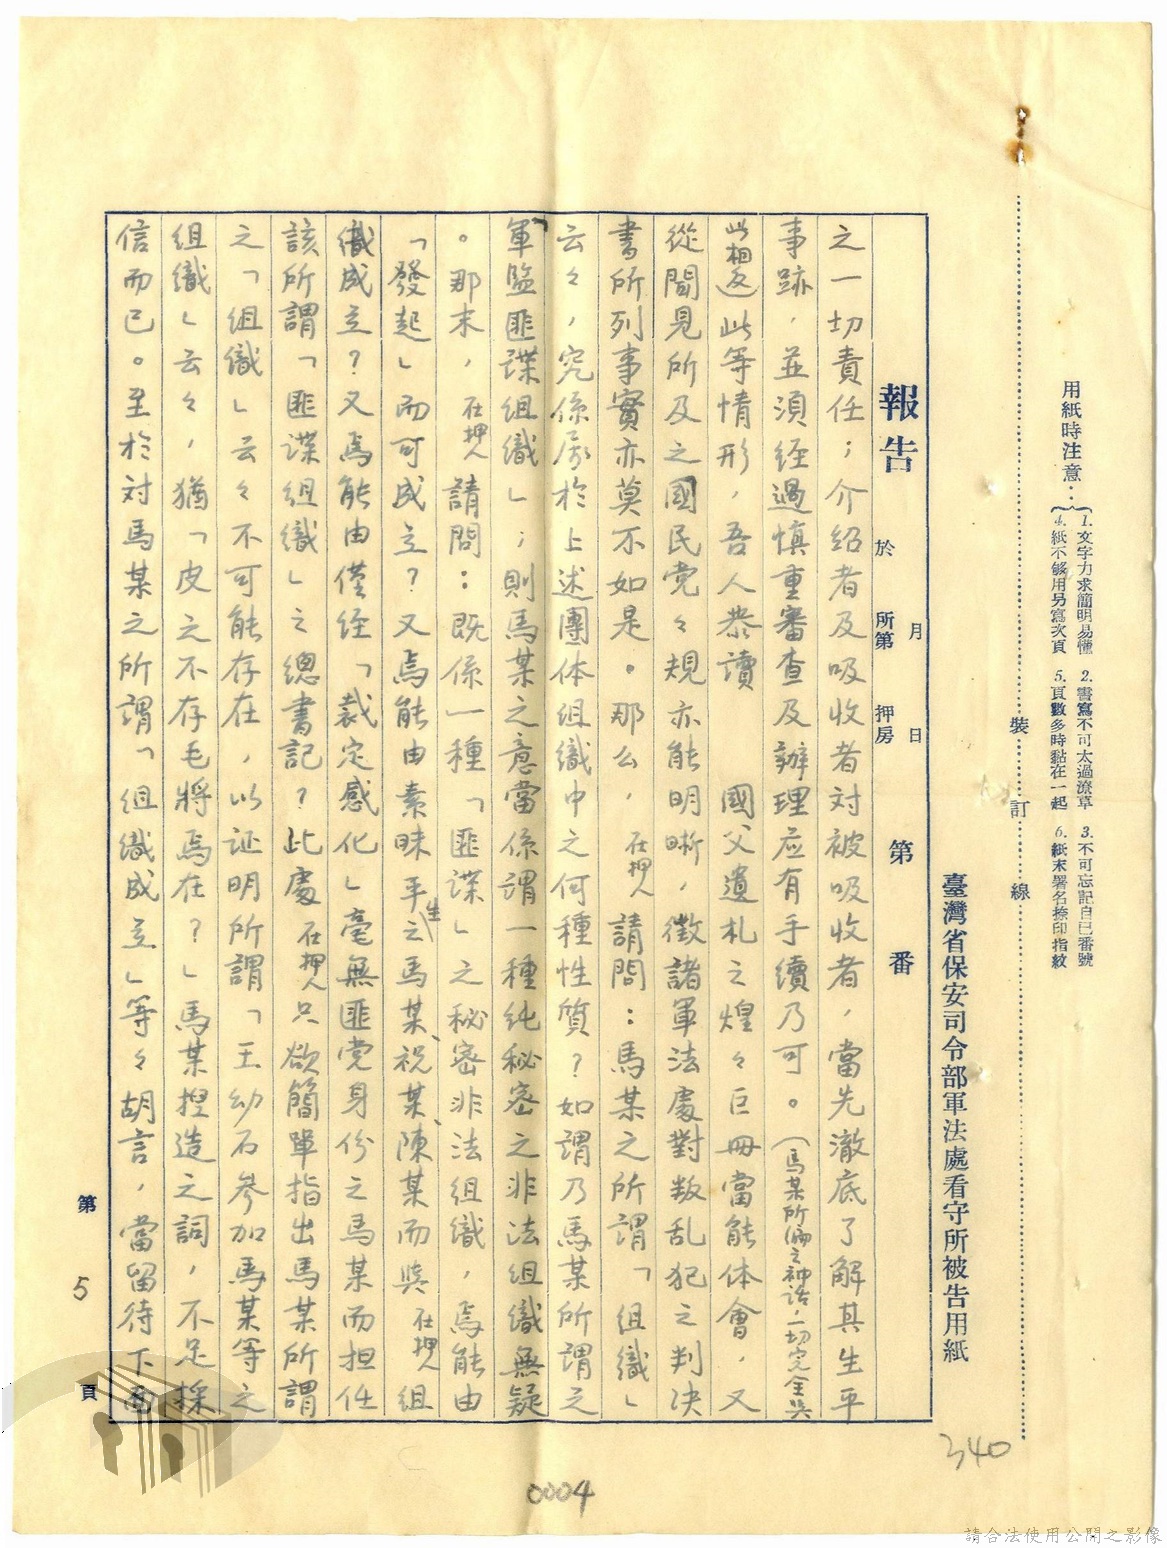 用紙時注意：
1. 文字力求簡明易懂 2. 書寫不可太過潦草 3. 不可忘記自已番號
4. 紙不够用另寫次頁 5. 頁數多時黏在一起 6. 紙末署名捺印指紋
裝 訂 線
臺灣省保安司令部軍法處看守所被告用紙
報告 於 月 日
所第 押房 第 番
之一切責任；介紹者及吸收者対被吸收者，當先澈底了解其生平
事跡，並須経過慎重審查及辦理应有手續乃可。（馬某所偏之神话，一切完全與
此相返）此等情形，吾人恭讀 國父遺札之煌々巨冊當能体會，又
從聞見所及之國民党々規亦能明晰，徵諸軍法處對叛乱犯之判决
書所列事實亦莫不如是。那么，在押人請問：馬某之所謂「組織」
云々，究係屬於上述團体組織中之何種性质？如谓乃馬某所謂之
「軍監匪諜組織」；則馬某之意當係谓一種純秘密之非法組織無疑
。那末，在押人請問：既係一種「匪諜」之秘密非法組織，焉能由
「發起」而可成立？又焉能由素昧平生之馬某、祝某、陳某而與在押人組
織成立？又焉能由僅経「裁定感化」毫無匪党身份之馬某而担任
該所謂「匪諜組織」之總書記？此處在押人只欲簡單指出馬某所謂
之「組織」云々不可能存在，以证明所謂「王幼石參加馬某等之
組織」云々，猶「皮之不存毛將焉在？」馬某揑造之詞，不足採
信而已。至於対馬某之所謂「組織成立」等々胡言，當留待下面
第 5 頁
340
0004
請合法使用公開之影像